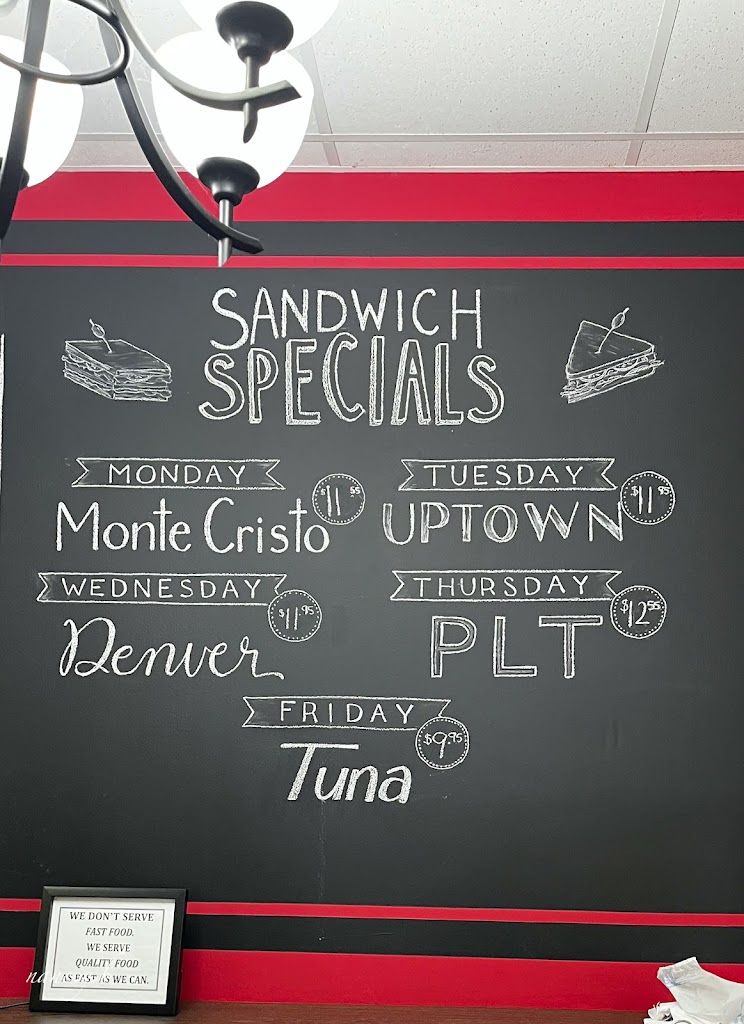 SANDWICH
SPECIALS
MONDAY
Monte Cristo
TUESDAY
$11.95
UPTOWN
WEDNESDAY
$11.95
Denver
THURSDAY
PLT
FRIDAY
$9.95
Tuna
WE DON'T SERVE
FAST FOOD.
WE SERVE
QUALITY FOOD
AS FAST AS WE CAN.